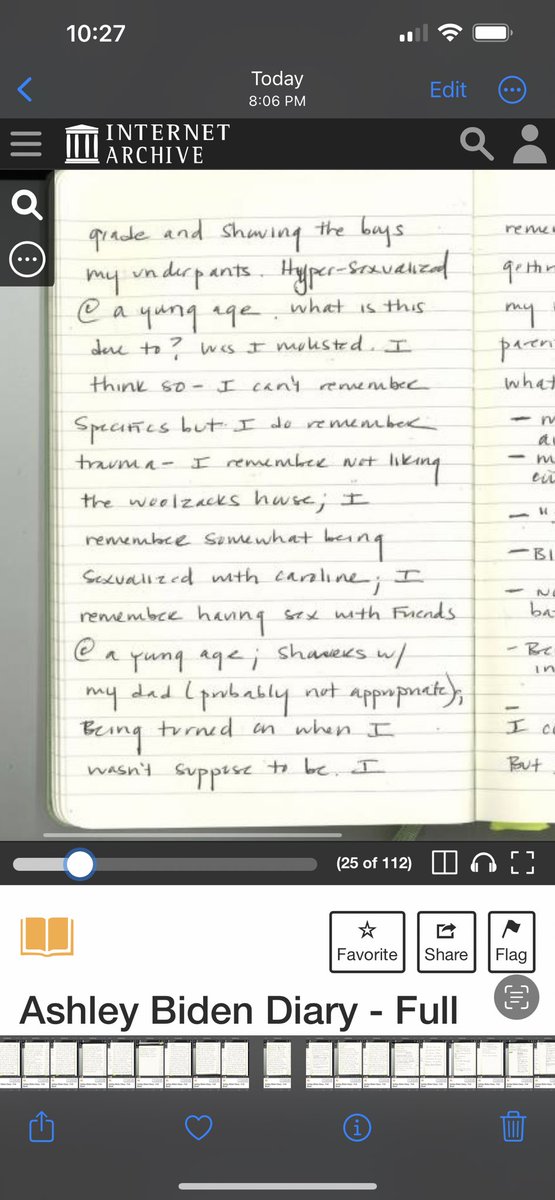 10:27
Today
8:06 PM
Edit
INTERNET
ARCHIVE
grade and showing the boys
my underpants. Hyper-sexualized
@ a yung age. what is this
due to? Was I molested. I
think so - I can't remember
specifics but I do remember
trauma - I remember not liking
the woolzacks house; I
remember somewhat being
sexualized with caroline; I
remember having sex with Friends
@ a yung age; showers w/
my dad (probably not appropriate);
Being turned on when I
wasn't suppose to be. I
my
what
I
But
(25 of 112)
Favorite
Share
Flag
Ashley Biden Diary - Full